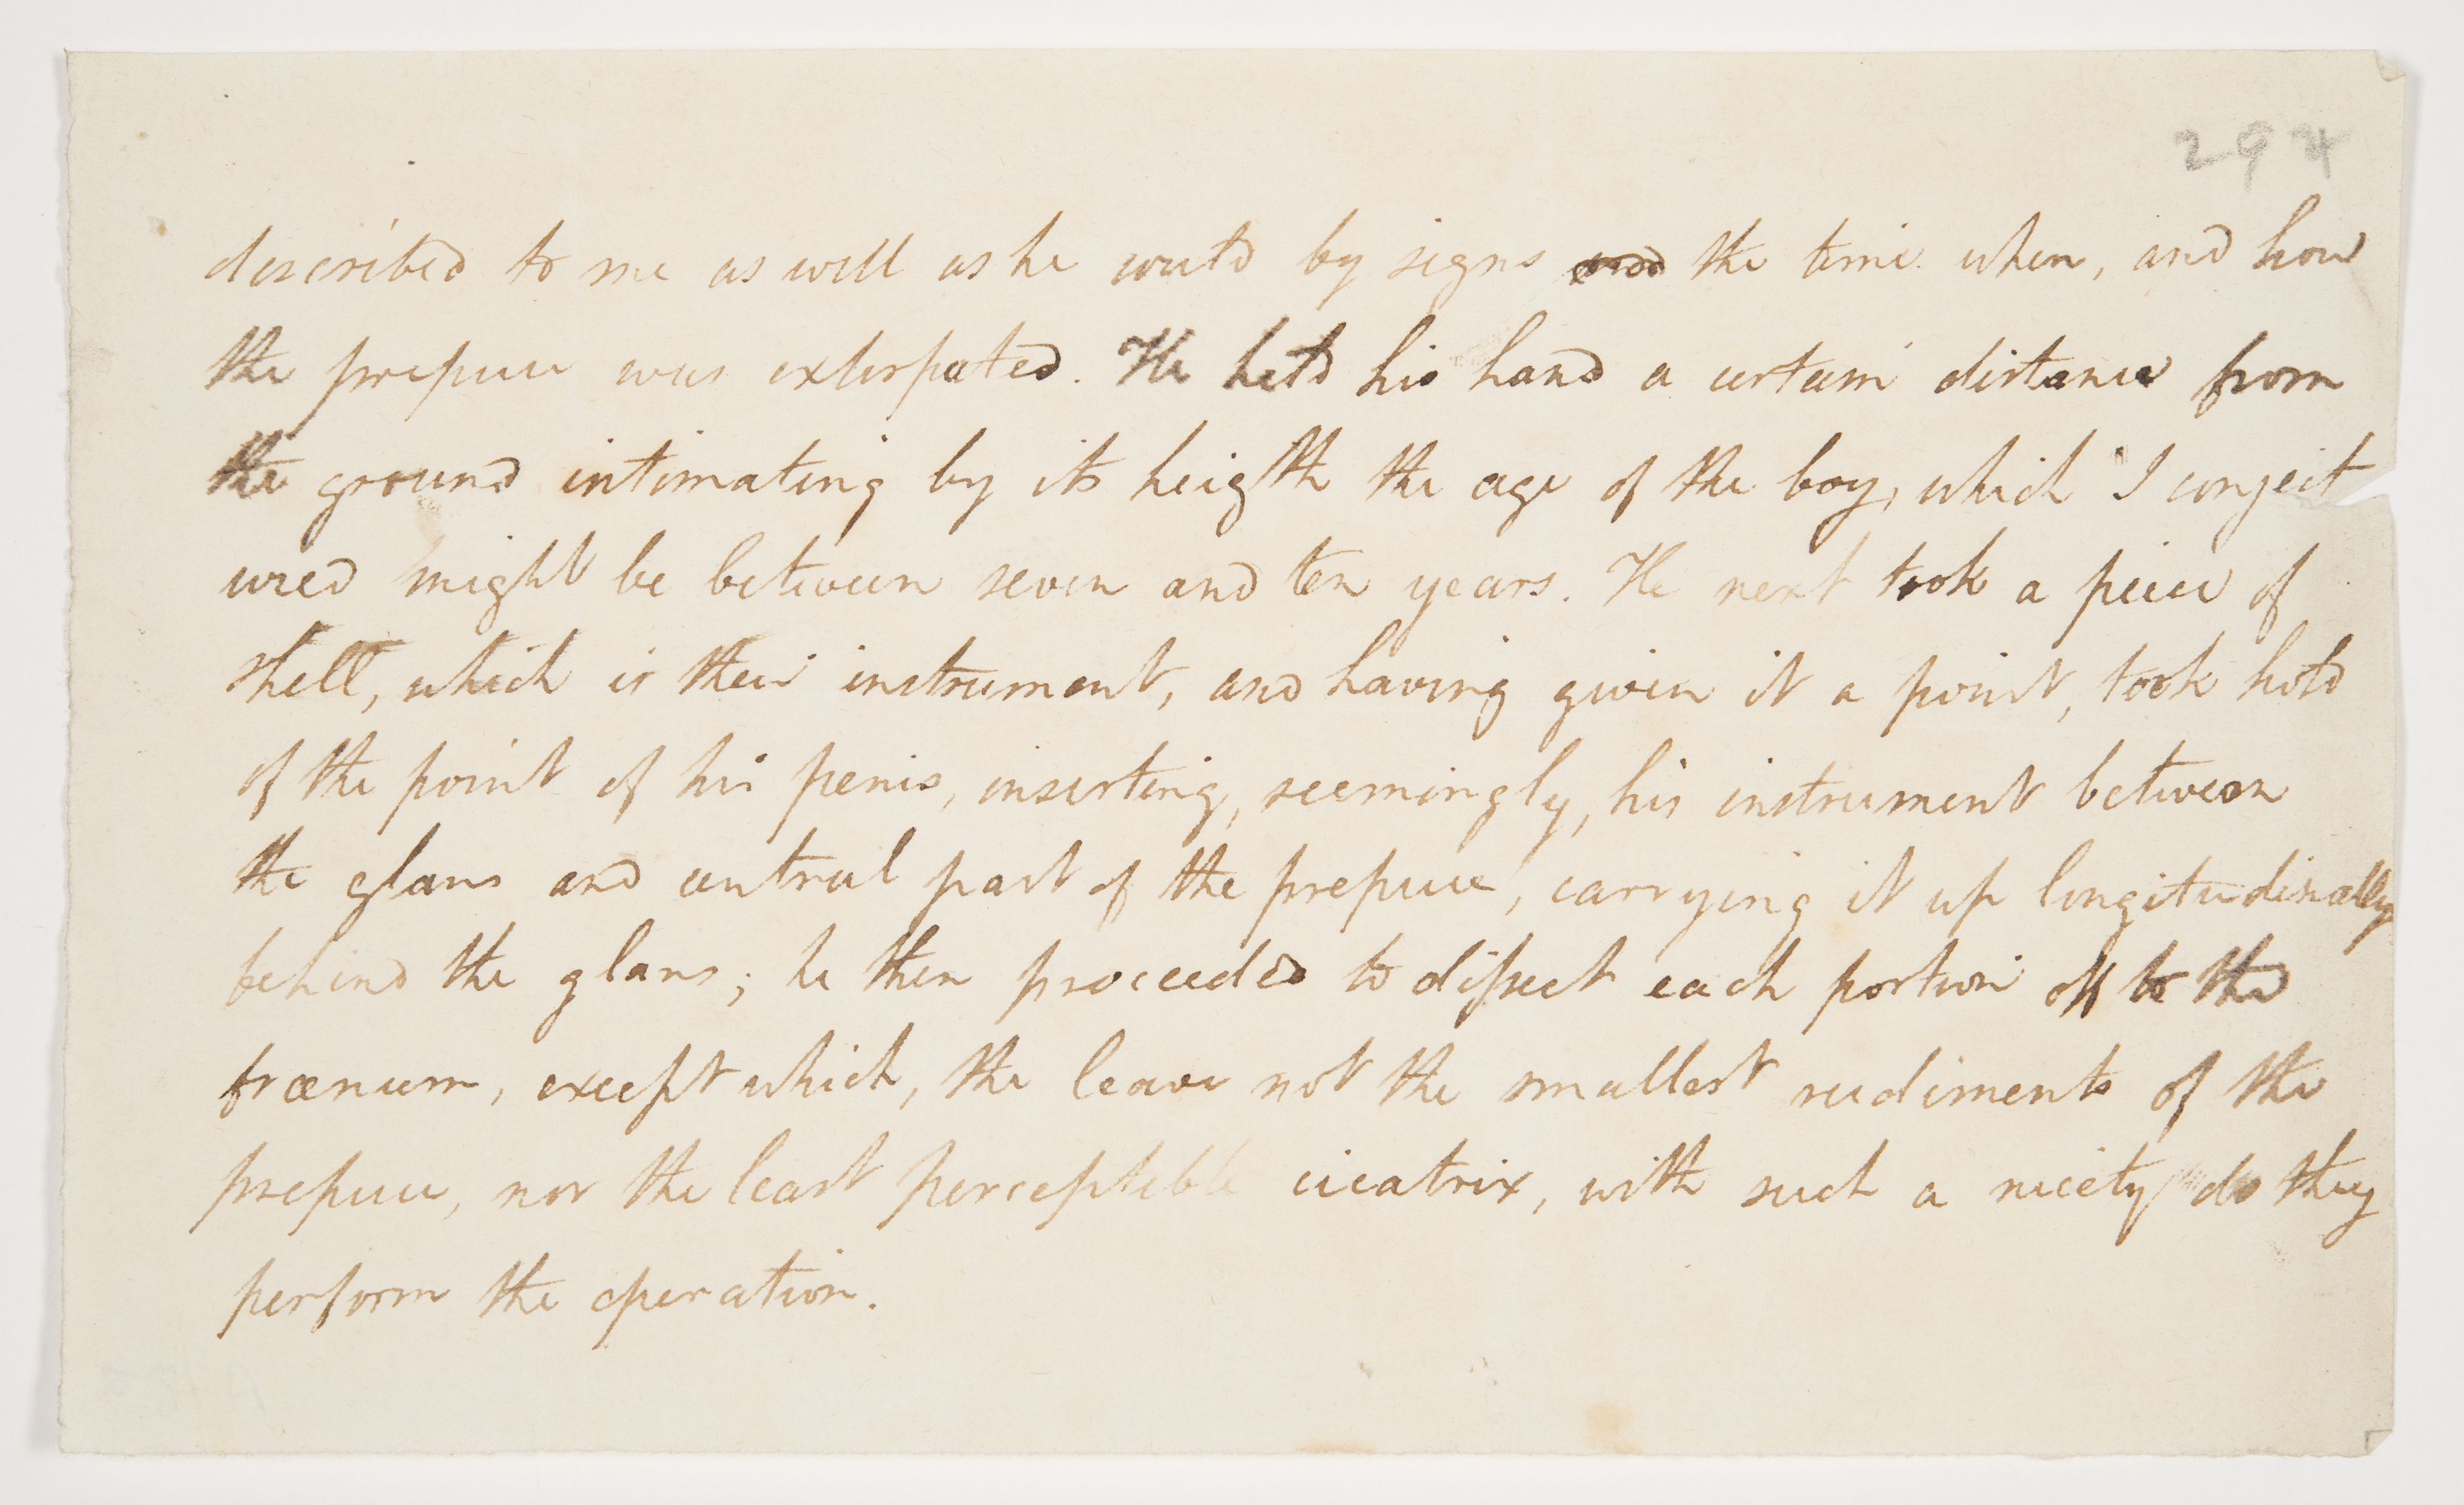 294
described to me as well as he could by signs and the time when, and how
the prepuce was exterpated. He held his hand a certain distance from
the ground intimating by its heigth the age of the boy, which I conject
ured might be between seven and ten years. He next took a piece of
shell, which is their instrument, and having given it a point, took hold
of the point of his penis, inserting, seemingly, his instrument between
the glans and central part of the prepuce, carrying it up longitudinally
behind the glans; he then proceeded to dissect each portion off to the
frænum, except which, the leave not the smallest rudiments of the
prepuce, nor the least perceptible cicatrix, with such a nicety do they
perform the operation.